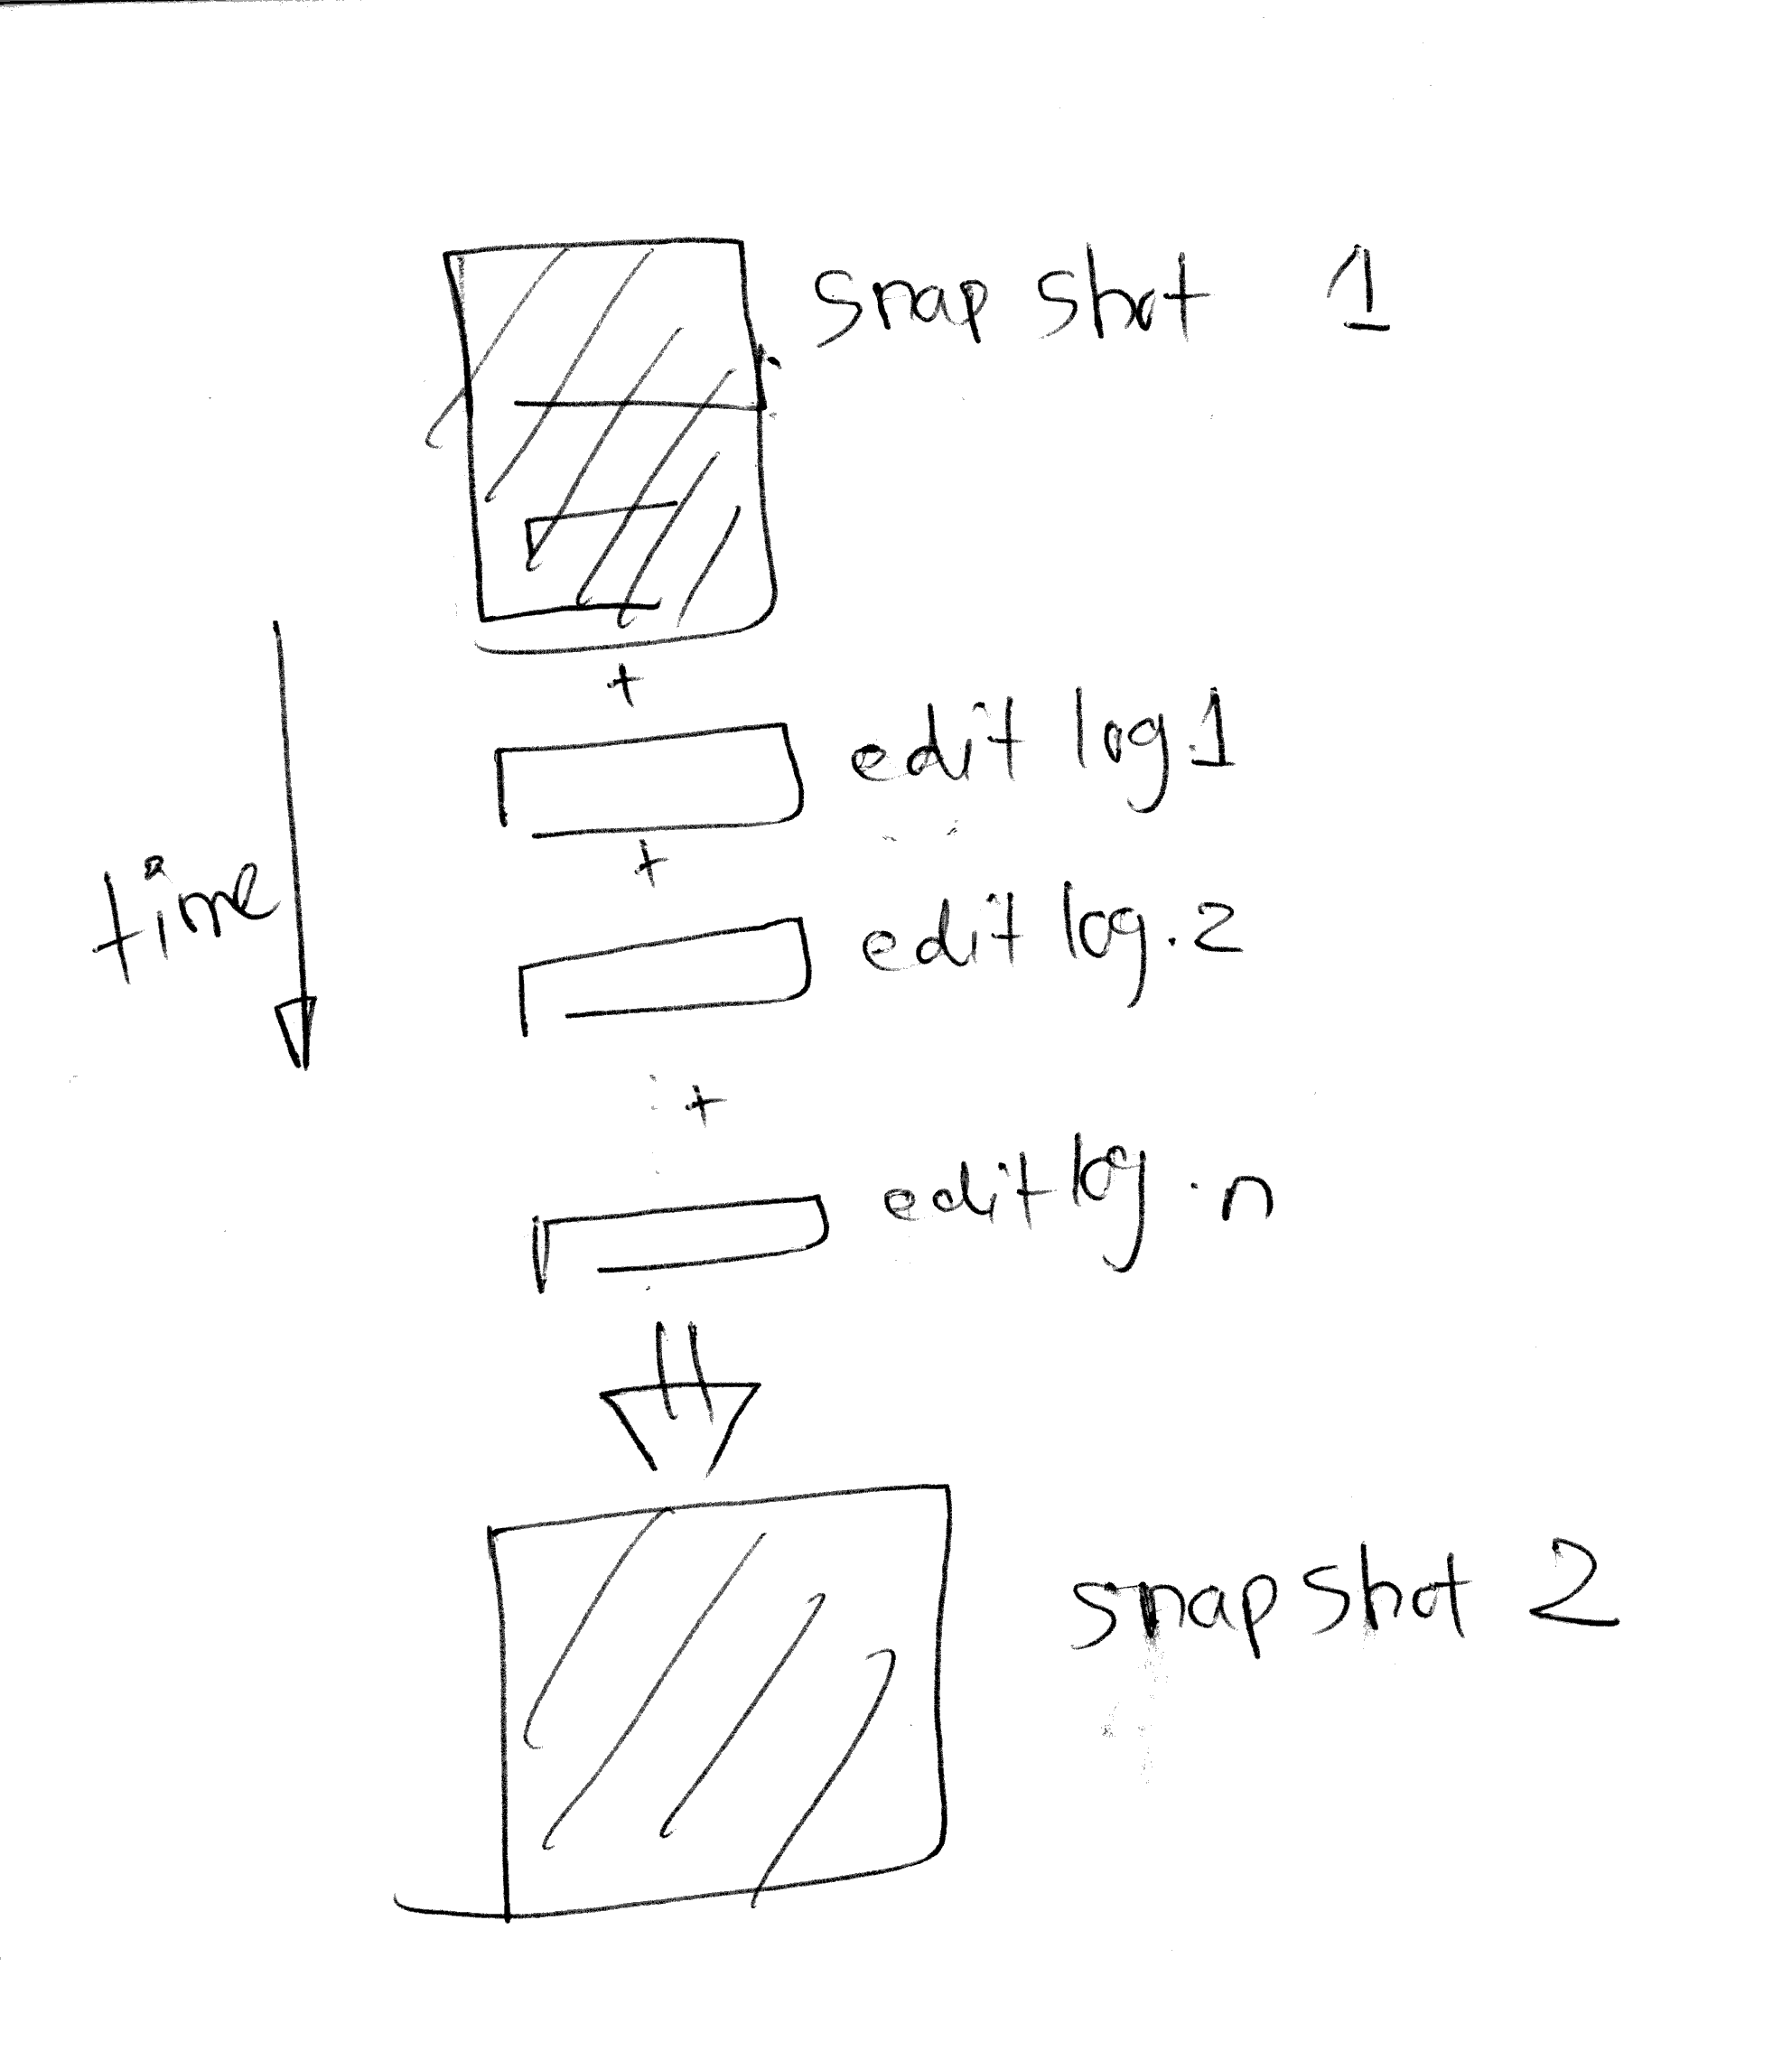 snap shot 1
+
edit log.1
+
time
edit log.2
+
edit log.n
snap shot 2